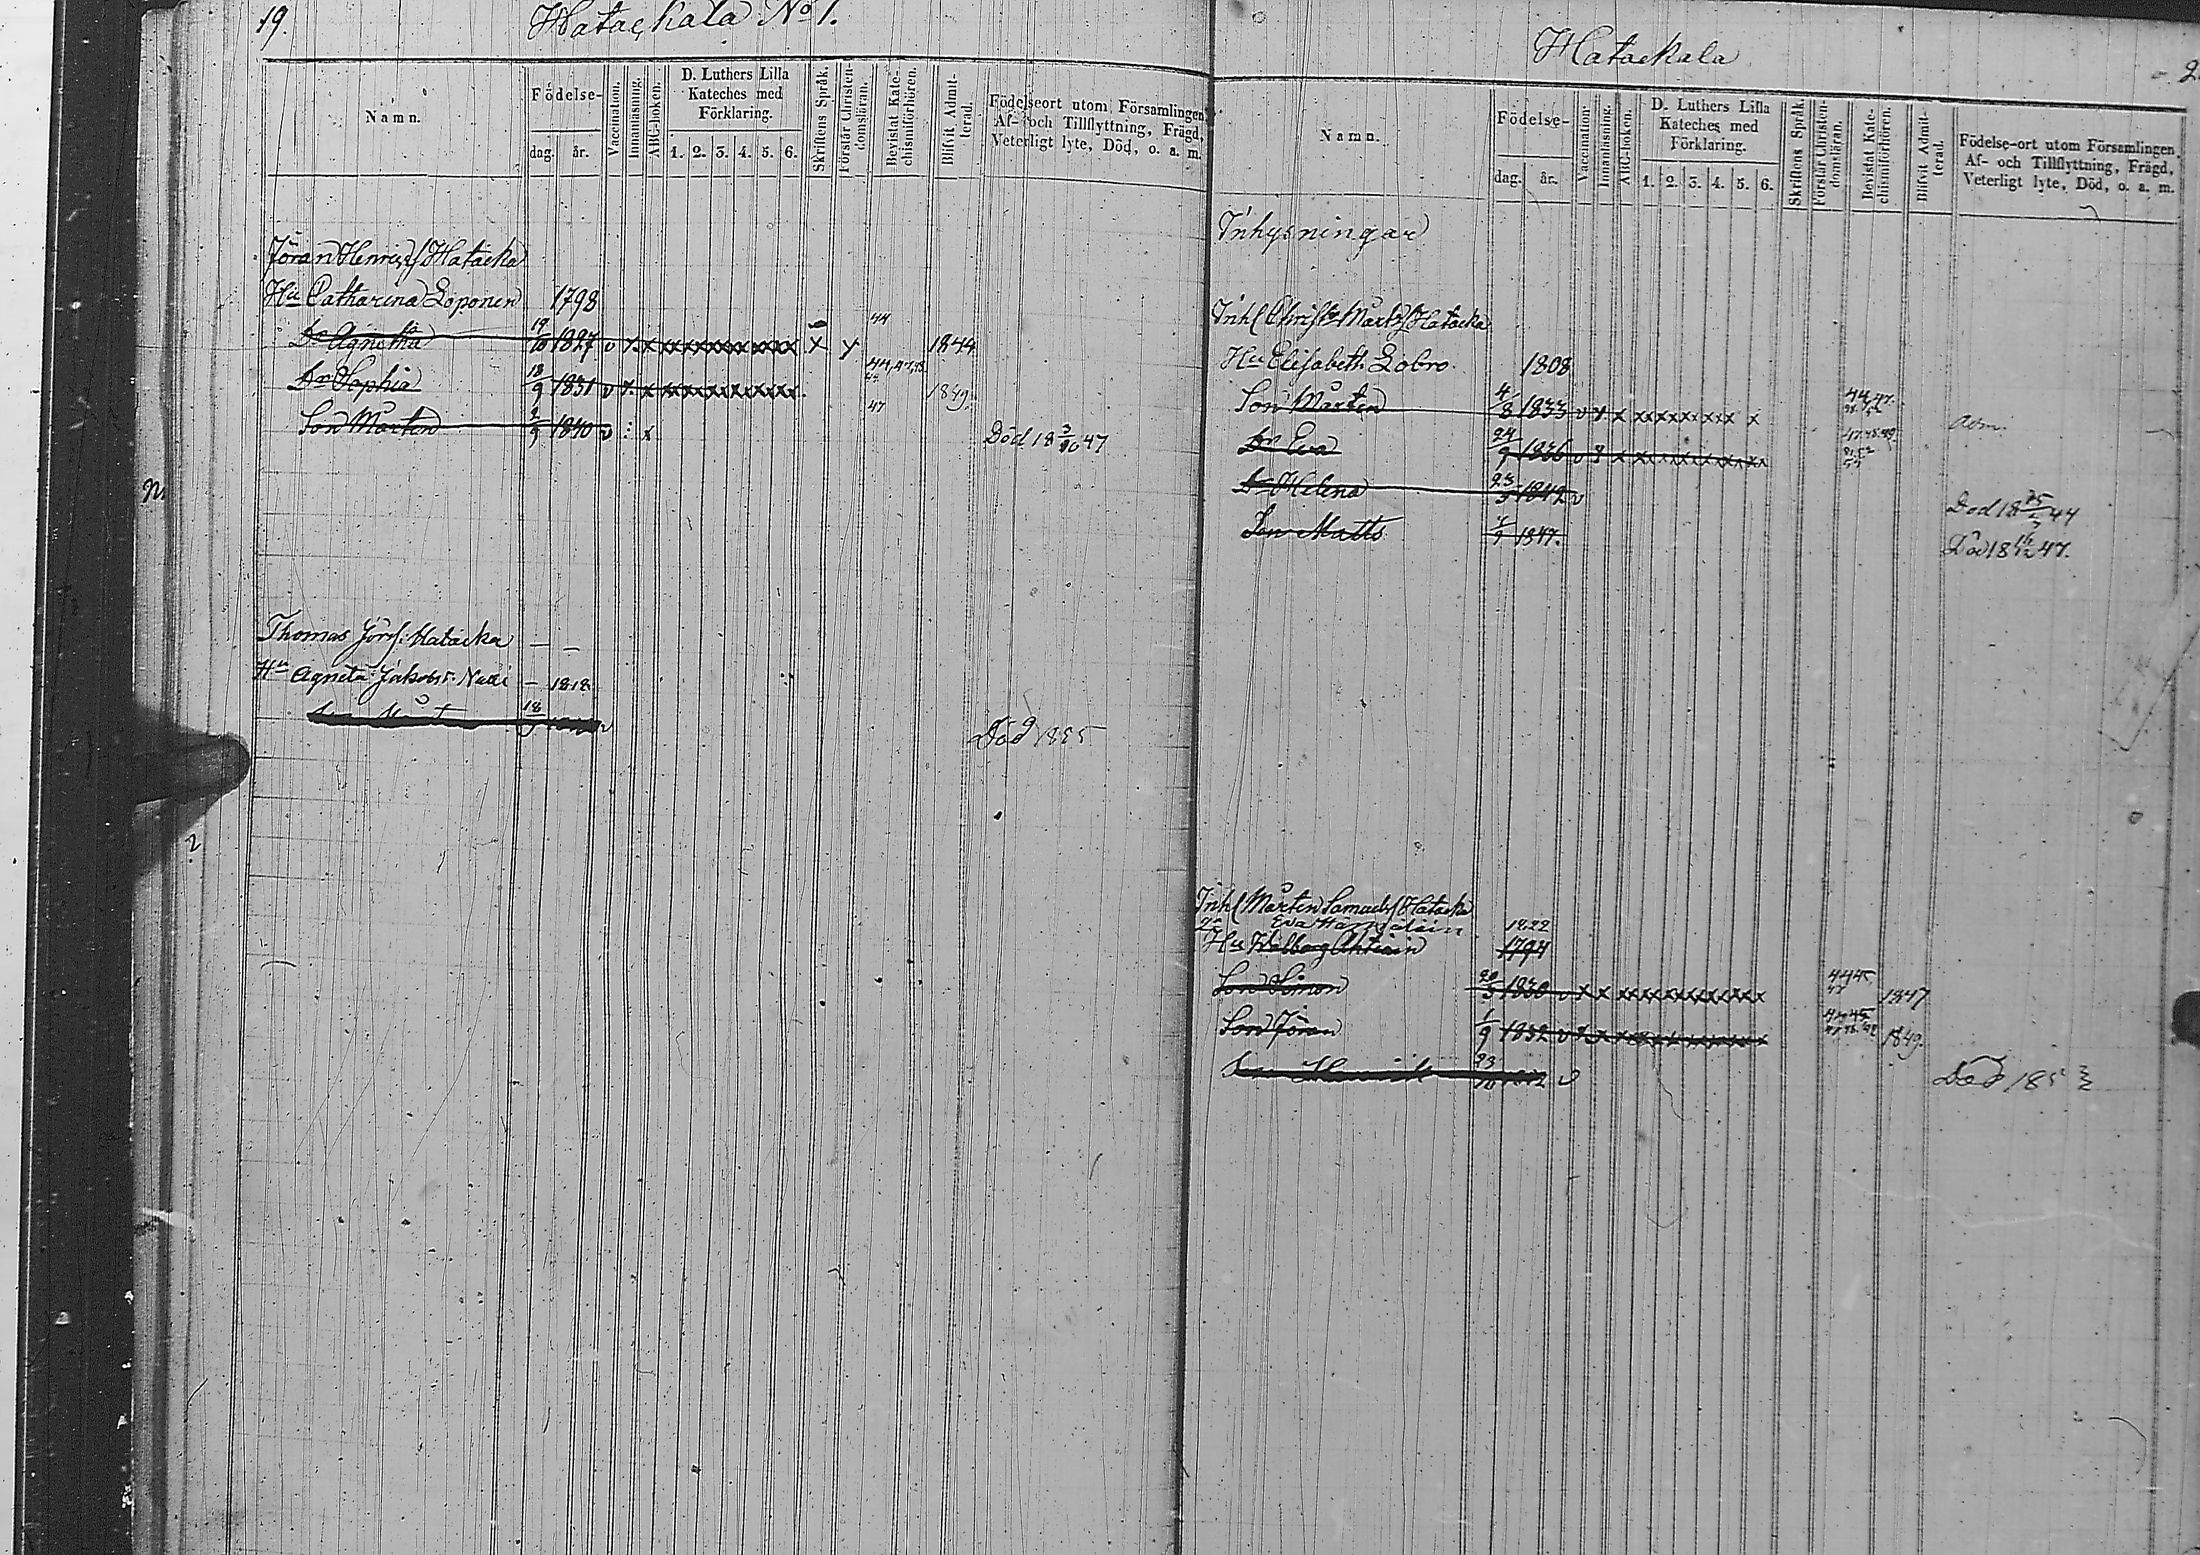 19. Hatackala No 1.
Namn. Födelse- dag. år. Vaccination. Innanläsning. ABC-boken. D. Luthers Lilla Kateches med Förklaring. 1. 2. 3. 4. 5. 6. Skriftens Språk. Förstår Christendomsläran. Bevistat Katechismiförhören. Blifvit Admitterad. Födelseort utom Församlingen, Af- och Tillflyttning, Frägd, Veterligt lyte, Död, o. a. m.
Jöran Henrics Hatacka
Hu Catharina Loponen 1798
Dr Agnetha 19/10 1827 v x x xx xx xx xx xxx x y 44 1844
Dr Sophia 18/9 1831 v x x 1849.
Son Mårten 2/9 1840 v : x 47 Död 18 3/10 47
Thomas Jörs: Hatacka — —
Hu Agneta Jakobsr. — 1818
18 v Död 1855
Hatackala
Namn. Födelse- dag. år. Vaccination. Innanläsning. ABC-boken. D. Luthers Lilla Kateches med Förklaring. 1. 2. 3. 4. 5. 6. Skriftens Språk. Förstår Christendomsläran. Bevistat Katechismiförhören. Blifvit Admitterad. Födelse-ort utom Församlingen, Af- och Tillflyttning, Frägd, Veterligt lyte, Död, o. a. m.
Inhysningar
Inh Hatacka
Hu Elisabeth Lobro 1808
Son Mårten 4/8 1833 v x x xxxxxxxx x 44,47. adm.
Dr Eva 24/9 1836 v 47.48.49.
Dr Helena 23 1842 v Död 18 44
Son Matts 1847. Död 18 47.
Inh Mårten Samuels Hatacka
Eva 1822
Hu Walborg Ahtiain 1794
Son Simon 20/3 1830 v x x xxxxxxxxxxxx 44 45 1847
Son Jöran 1/9 1832 v 44 45 1849.
Son Henrik 23 v Död 185